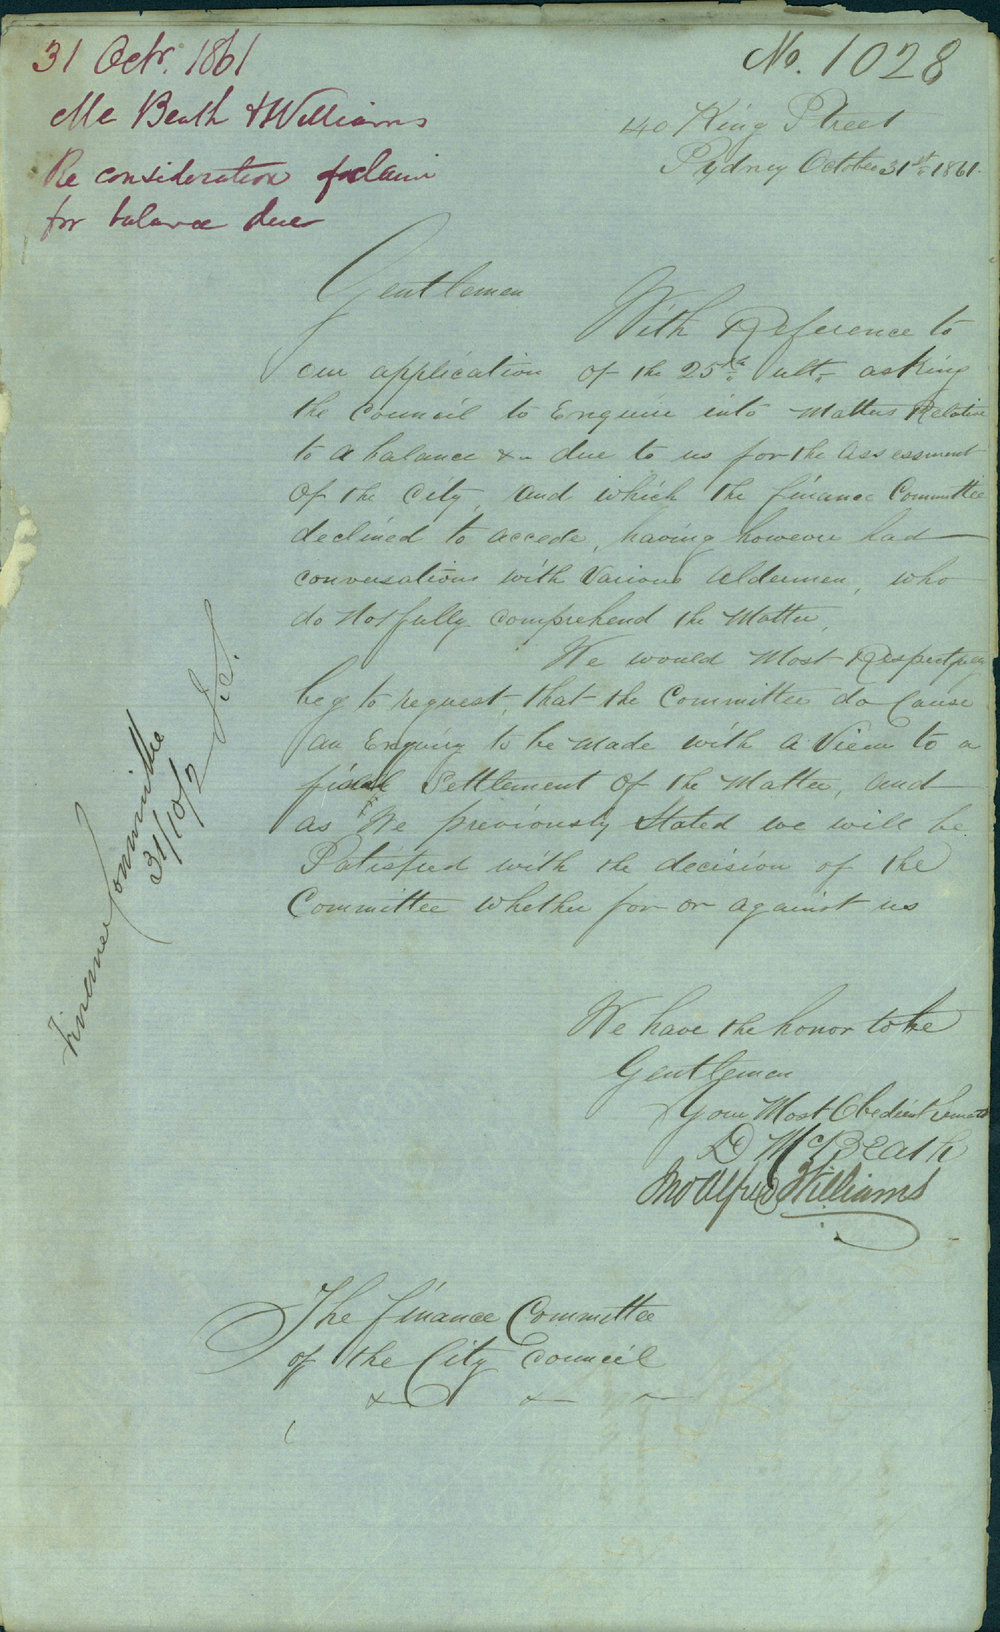 31 Octr. 1861
Mc Beath & Williams
Re consideration of claim
for balance due
No. 1028
140 King Street
Sydney October 31st 1861.
Gentlemen
With Reference to
our application of the 25th ult. asking
the Council to Enquire into Matters Relative
to a balance &c due to us for the Assessment
of the City, and which the finance Committee
declined to accede, having however had
conversations with Various Aldermen, who
do Not fully comprehend the Matter,
We would Most Respectfully
beg to request, that the Committee do Cause
an Enquiry to be Made with a View to a
final Settlement of the Matter, and
as We previously Stated we will be
Satisfied with the decision of the
Committee whether for or against us
We have the honor to be
Gentlemen
Your Most Obedient Servants
D McBeath
Jno Alfred Williams
The Finance Committee
of the City Council
&c &c
Finance Committee
31/10/